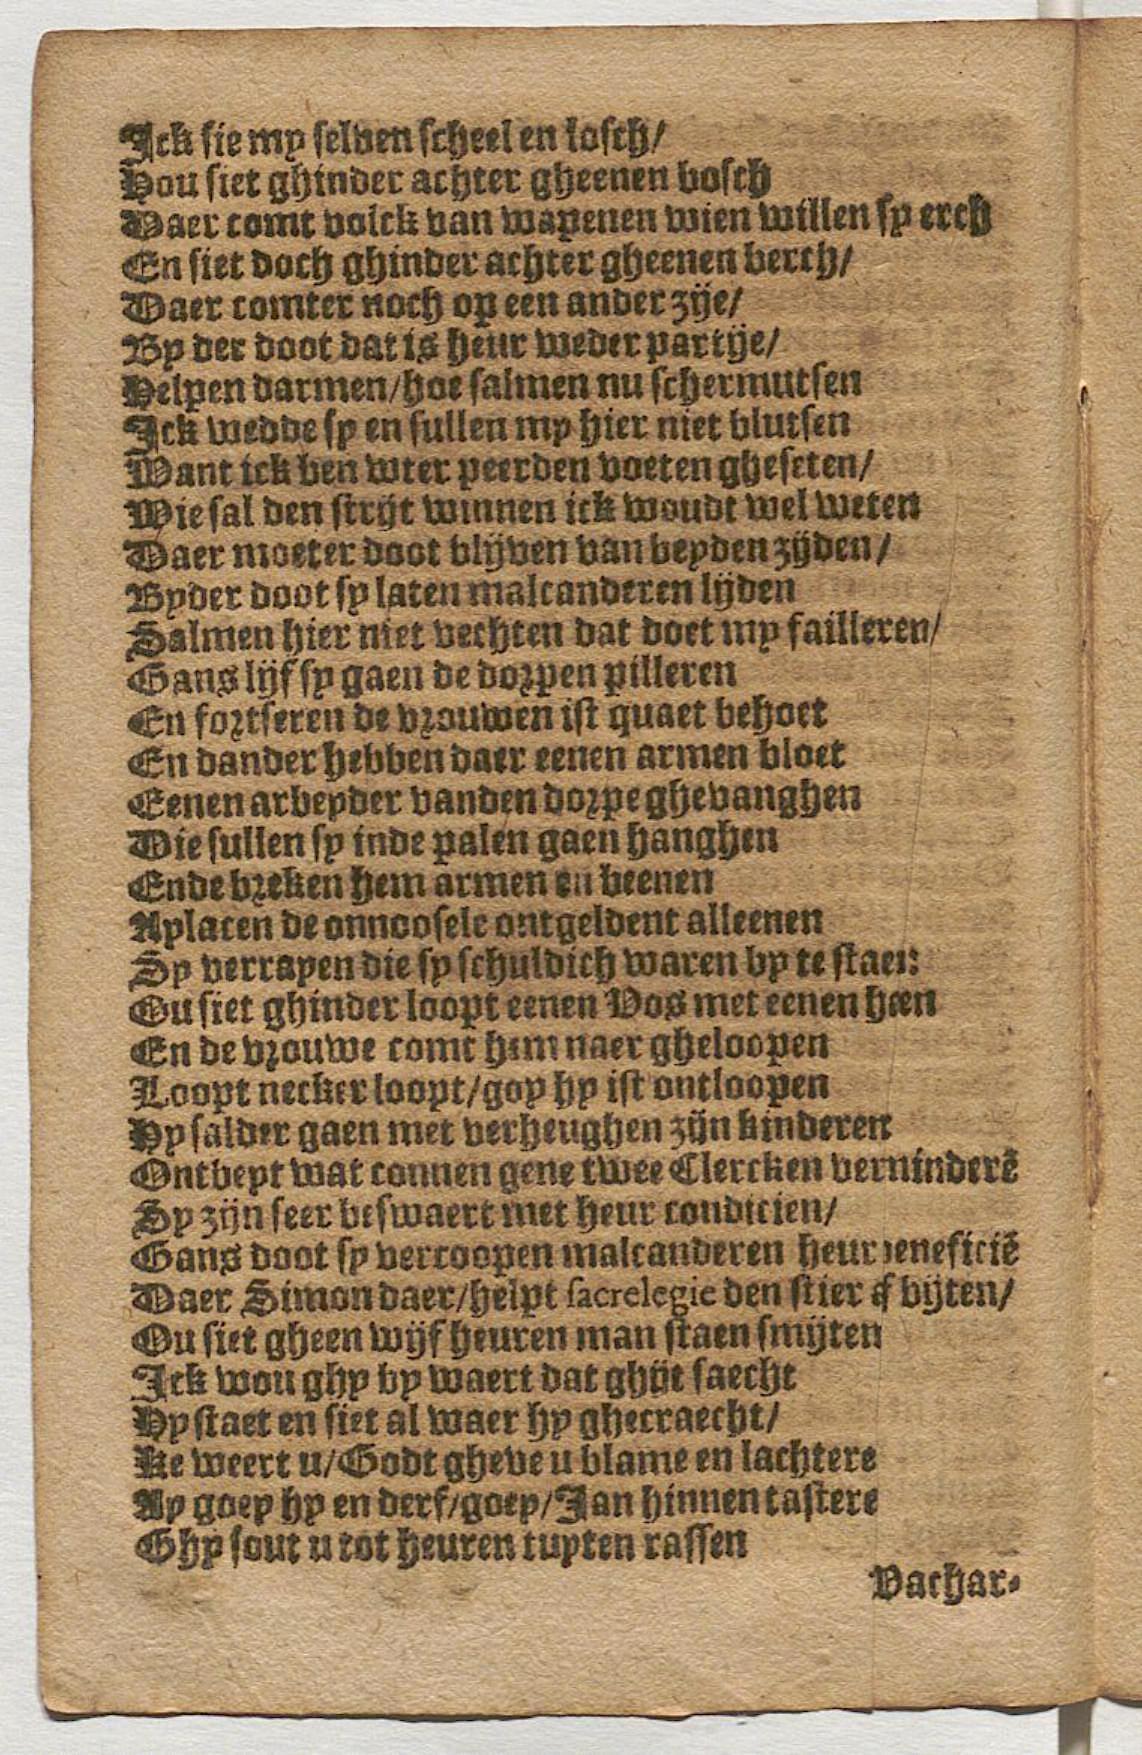 Ick sie my selven scheel en losch/
Hou siet ghinder achter gheenen bosch
Daer comt volck van wapenen wien willen sy erch
En siet doch ghinder achter gheenen berch/
Daer comter noch op een ander zije/
By der doot dat is heur weder partije/
Helpen darmen/hoe salmen nu schermutsen
Ick wedde sy en sullen my hier niet blutsen
Want ick ben wter peerden voeten gheseten/
Wie sal den strijt winnen ick woudt wel weten
Daer moeter doot blijven van beyden zijden/
Byder doot sy laten malcanderen lijden
Salmen hier niet vechten dat doet my failleren/
Gans lijf sy gaen de dorpen pilleren
En fortseren de vrouwen ist quaet behoet
En dander hebben daer eenen armen bloet
Eenen arbeyder vanden dorpe ghevanghen
Die sullen sy inde palen gaen hanghen
Ende breken hem armen en beenen
Aylacen de onnoosele ontgeldent alleenen
Sy verrapen die sy schuldich waren by te staen
Ou siet ghinder loopt eenen Vos met eenen haen
En de vrouwe comt hem naer gheloopen
Loopt necker loopt/goy hy ist ontloopen
Hy salder gaen met verheughen zijn kinderen
Ontbeyt wat connen gene twee Clercken verninderē
Sy zijn seer beswaert met heur condicien/
Gans doot sy vercoopen malcanderen heur beneficiē
Daer Simon daer/helpt sacrelegie den stier af bijten/
Ou siet gheen wijf heuren man staen smijten
Ick wou ghy by waert dat ghijt saecht
Hy staet en siet al waer hy ghecraecht/
Ke weert u/Godt gheve u blame en lachtere
Ay goey hy en derf/goey/Jan hinnen tastere
Ghy sout u tot heuren tuyten rassen
Vachar-